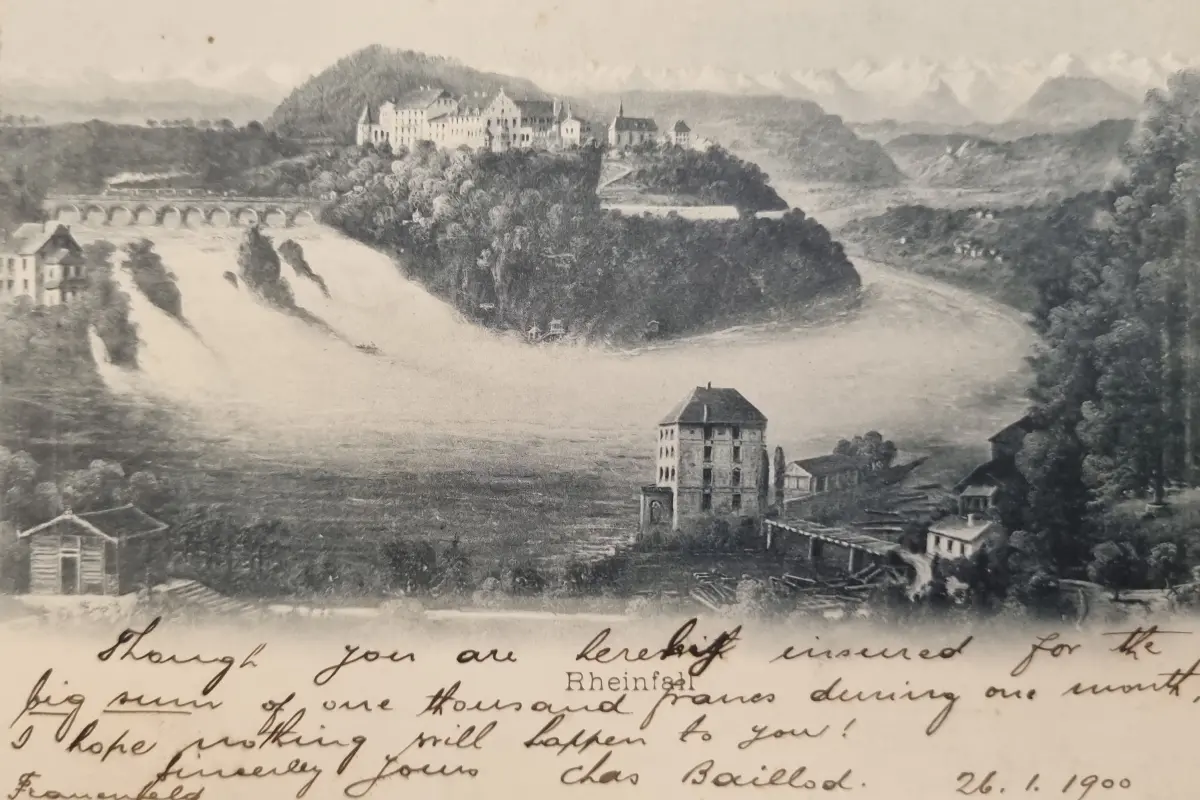 Though you are hereby insured for the
Rheinfall
big sum of one thousand francs during one month,
I hope nothing will happen to you!
Sincerely yours Chas Baillod. 26. 1. 1900
Frauenfeld